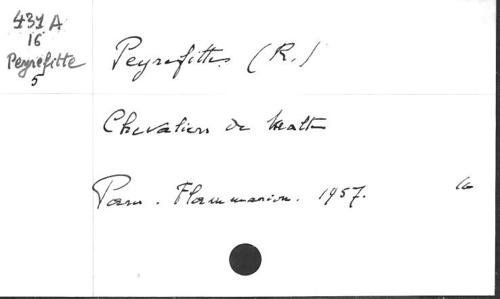 431 A
16
Peyrefitte
5
Peyrefitte (R.)
Chevaliers de Malte
Paris. Flammarion. 1957. 16